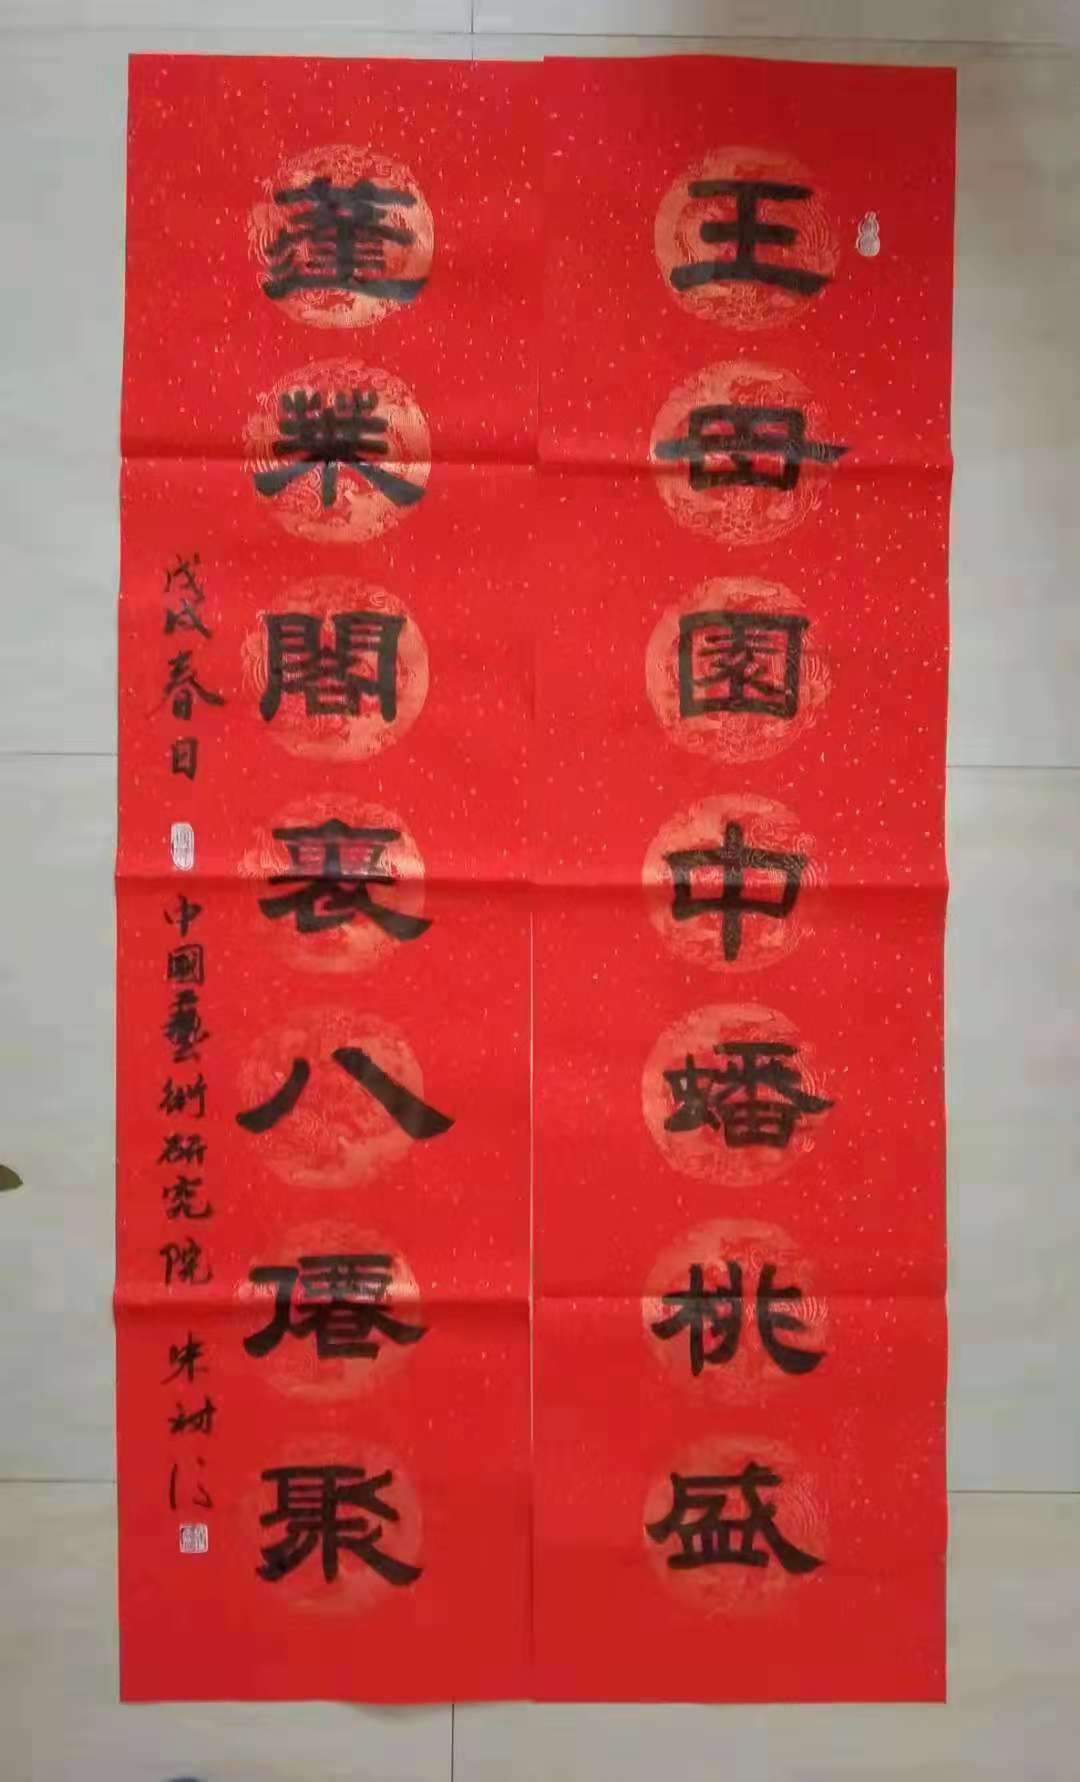 王母園中蟠桃盛
蓬萊閣裏八僊聚
戊戌春日
中國藝術研究院